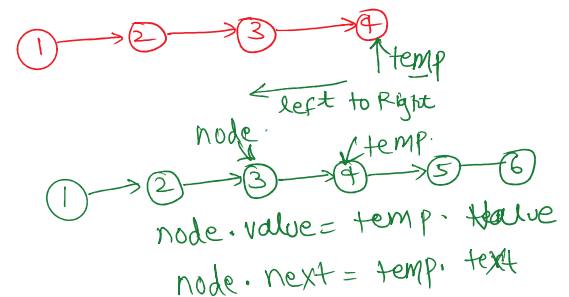 1 2 3 4
temp
left to Right
node.
temp.
1 2 3 4 5 6
node.value = temp. value
node.next = temp. text